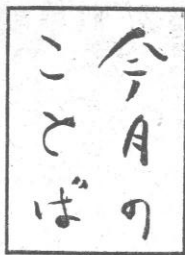 今月の
ことば